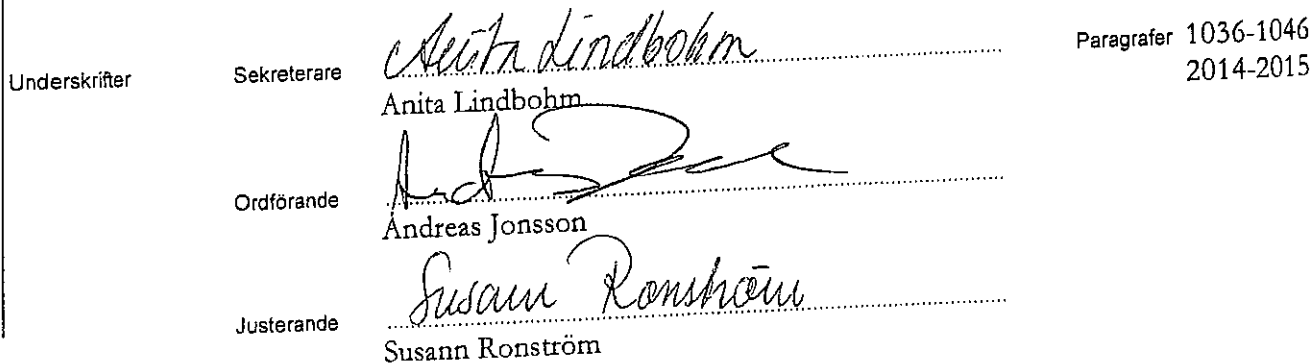 Underskrifter Sekreterare Anita Lindbohm Paragrafer 1036-1046
2014-2015
Anita Lindbohm
Ordförande
Andreas Jonsson
Justerande Susann Ronström
Susann Ronström